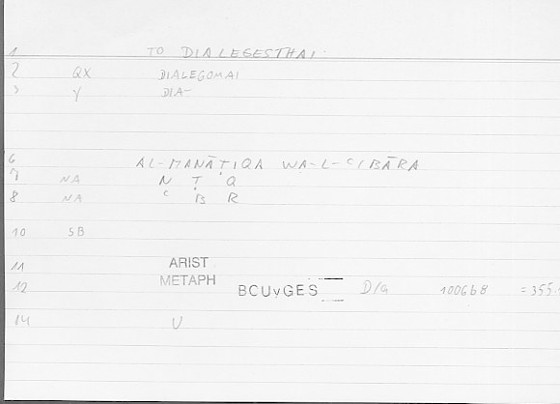 1 TO DIALEGESTHAI
2 QX DIALEGOMAI
3 Y DIA-
6 AL-MANĀṬIQA WA-L-ꜤIBĀRA
7 NA N Ṭ Q
8 NA Ꜥ B R
10 SB
11 ARIST
METAPH
12 BCUvGES D/a 1006b8 = 355.
14 V